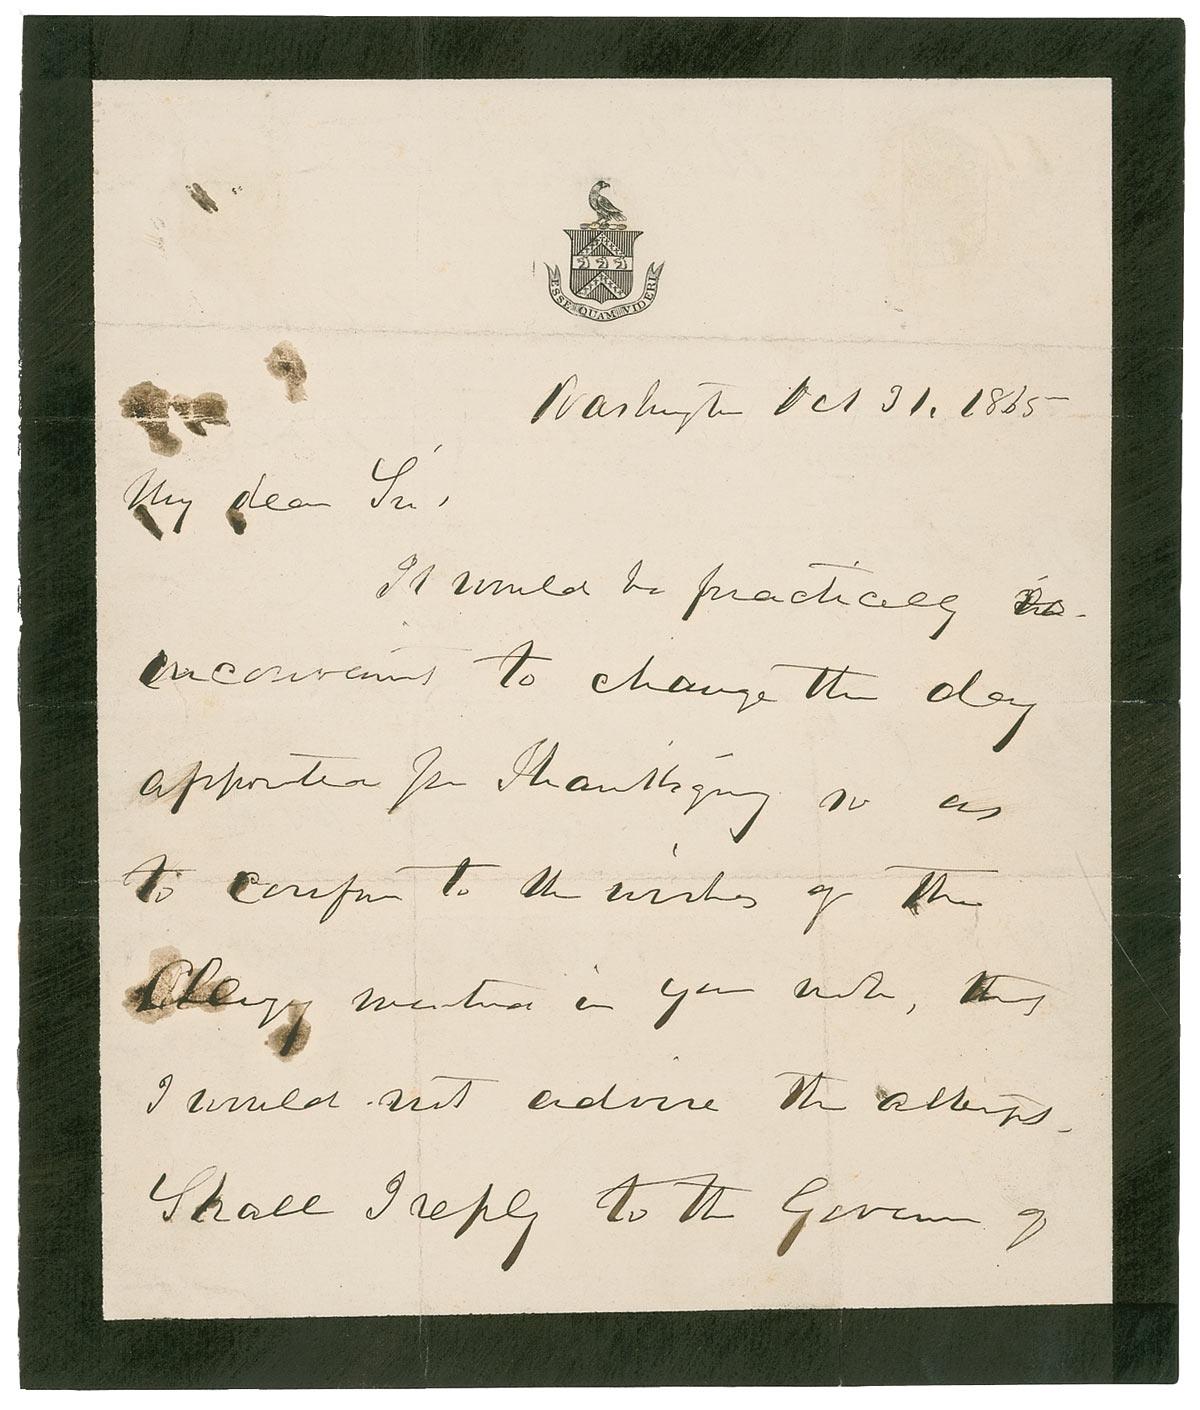 ESSE QUAM VIDERI
Washington Oct 31. 1865
My dear Sir,
It would be practically in-
inconvenient to change the day
appointed for Thanksgiving so as
to conform to the wishes of the
Clergy mentioned in your note, thus
I would not advise the attempt.
Shall I reply to the Governor of